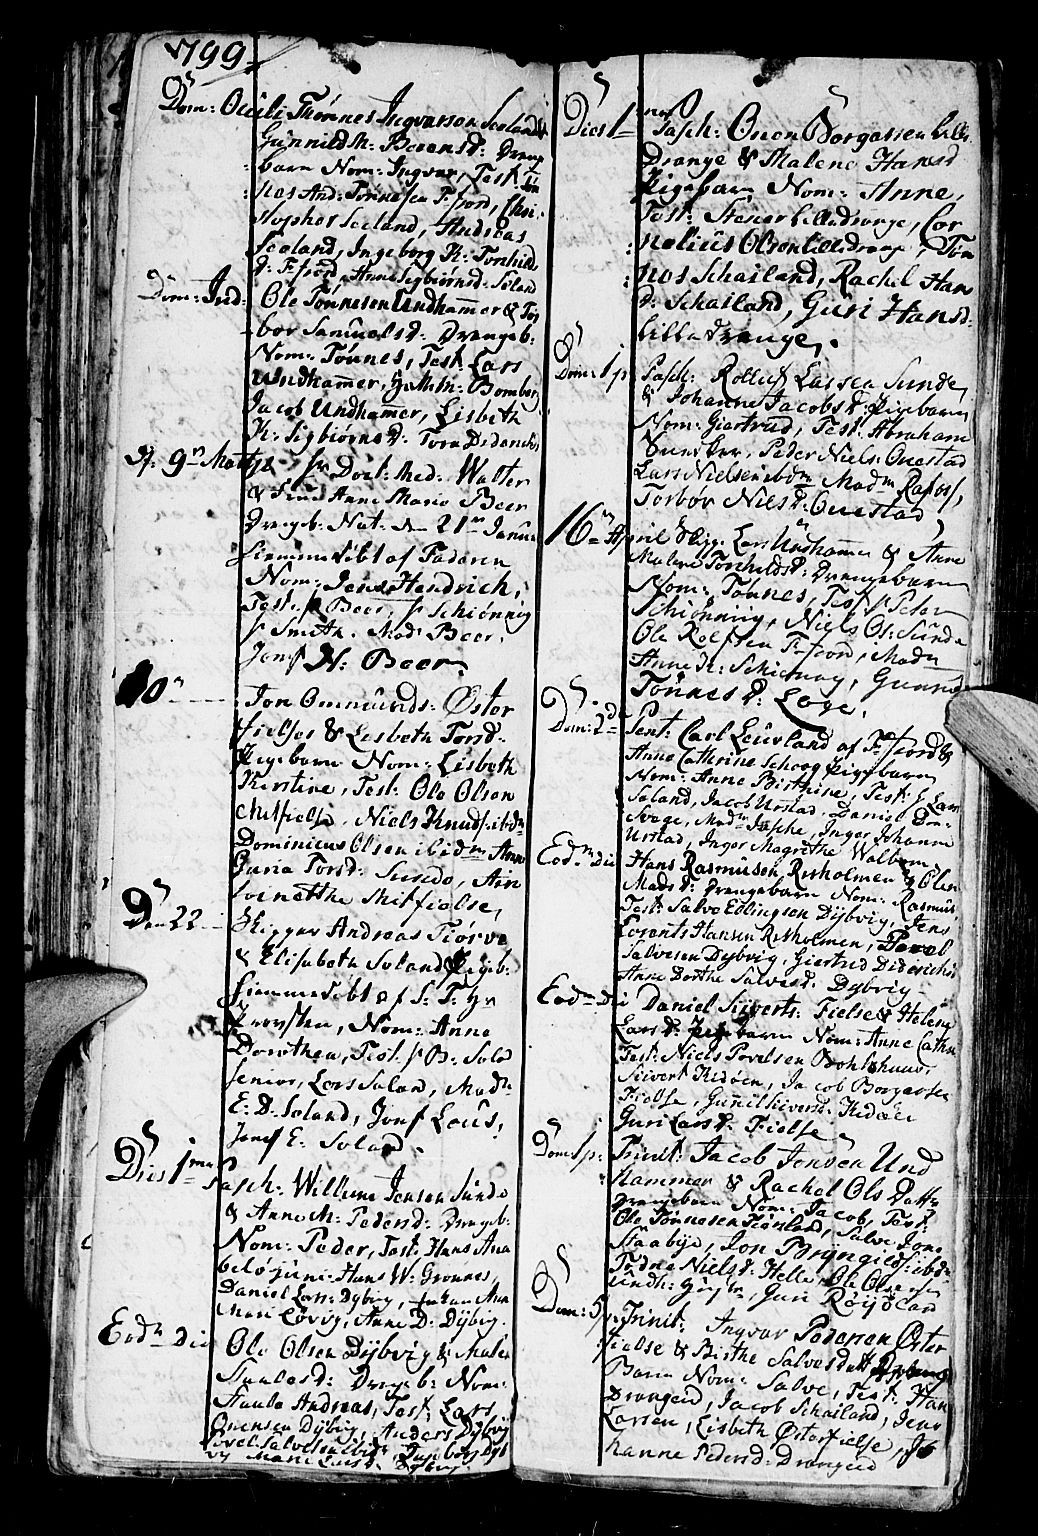 1799.
Dom: Oculi Tønnes Ingvarson Seeland &
Gunnild M: Berensd: Dreng
barn Nom: Ingvar, Test: Tøn
nes And: Tønnesen F:fjord, Chri
stopher Seeland, Andreas
Seeland, Ingeborg K: Tønhild
d: F:fjord, Anne Sigbiørnsd: Seland
Dom: Jud: Ole Tønnesen Undhammer & Tor
bor Samuelsd: Drengeb:
Nom: Tønnes, Test: Lars
Undhammer, Bomberg
Jacob Undhammer, Lisbeth
K: Sigbiørnsd: Tora Didrichs
9n Martji Sr Doct: Med: Walter
& Frue Anne Marie Beer
Drengb: Nat: den 21n Janu
hiemmedøbt af Faderen
Nom: Jens Hendrich,
Test: Sr Beer, Sr Schiønnig
Sr Smith. Mad: Beer,
Jomf N: Beer
10n Jon Ommunds: Øster
fielse & Lisbeth Torsd:
Pigebarn Nom: Lisbeth
Kirstine, Test: Ole Olsen
Mitfielse, Niels Knuds: ibdm
Dominicus Olsen ibidm Anne
Guria Torsd:
Mitfielse,
Den 22 Skipper Andreas Tiørve
& Elisabeth Soland Pigeb:
hiemmedøbt af S: T: Hr
Provsten, Nom: Anne
Dorothea, Test: Sr B: Solad
senior, Lars Saland, Madm
E: D: Soland, Jomf Lous,
Jomf E: Soland.
Dies 1ma Pasch: Willum Jensen Sunde
& Anne M: Pedersd: Drengeb:
Nom: Peder, Test: Hans Ana
beløjuni Hans W: Grønnes,
Daniel Lars: Dybvig,
Mari Løvig, Anne D: Dybvig.
Eodm Die Ole Olsen Dybvig & Malen
Staalesd: Drengeb: Nom:
Staale Andreas, Test: Lars
Onensen Dybvig, Anders Dybvig
Povel Salvesen ibid:
vig Mari Larsd: Dybvig.
Dies 1ma Pasch: Onen Borgersen Lille
Drange & Malene Hansd
Pigebarn Nom: Anne,
Test: Stener Lilledrange, Cor
nelius Olsen Lilledrange, Tøn
nes Schailand, Rachel Han
d: Schailand, Guri Hansd:
Lilledrange.
Dom: 1 p. Pasch: Rolluf Larsen Sunde
& Johanne Jacobsd: Pigebarn
Nom: Giertrud, Test: Abraham
Bunsker, Peder Niels: Onestad
Lars Nielsen ibdm Madm Rafos,
Torbor Nielsd: Onestad
16n April Skipp. Lars Undhammer & Anne
Malene Tønhildsd: Drengebarn
Nom: Tønnes, Test: Sr Peter
Schiønning, Niels Ols: Sunde
Ole Roelfsen F:fjord, Madm
Anne K: Schiønning, Gunnil
Tønnesd: Løge.
Dom: 2d Pent: Carl Leuvland af F:fjord &
Anne Cathrine Schoog Pigebarn
Nom: Anne Birthine, Test: Lars
Saland, Jacob Urstad, Daniel
Svege, Madm Jasche, Inger Johanne
Urstad, Inger Magrethe Walbom
Eodm Die Hans Rasmussen Risholmen & Olen
Madsd: Drengebarn Nom: Rasmus
Test: Salve Edlingson Dybvig, Jens
Lorents Hansen Risholmen, Povel
Salvesen Dybvig, Giertrud Diderichsd
Anne Dorthe Salvesd: Dybvig
Eodm Die Daniel Siverts: Fielse & Helene
Larsd: Pigebarn Nom: Anne Cathr
Test: Niels Povelsen Bohlshauv,
Sivert Kidøen, Jacob Borgersen
Fielse, Gunild Siversd: Kidøen
Guri Larsd: Fielse
Dom: 1 p: Trinit: Jacob Jensen Und
hammer & Rachel Ols Datter
Drengebarn Nom: Jacob, Test:
Ole Tønnesen Salve Jons
Staabye, Jon Bryngilds: ibdm
Todne Nielsd: Helle, Ole Olsen
Guri Røijøland
Dom: 5 p: Trinit: Ingvar Pedersen Øster
fielse & Birthe Salvesdatt Dreng
Barn Nom: Salve, Test: Han
Drangeid, Jacob Schailand, Jens
Larsen, Lisbeth Østerfielse, Jo
hanne Pedersd: Drangeid